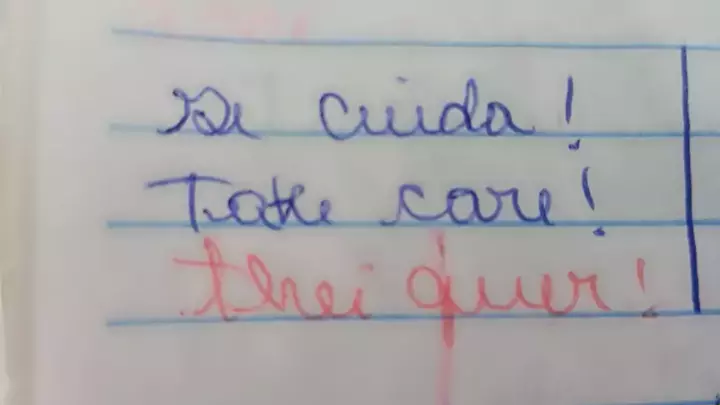 Se cuida!
Take care!
thei quer!